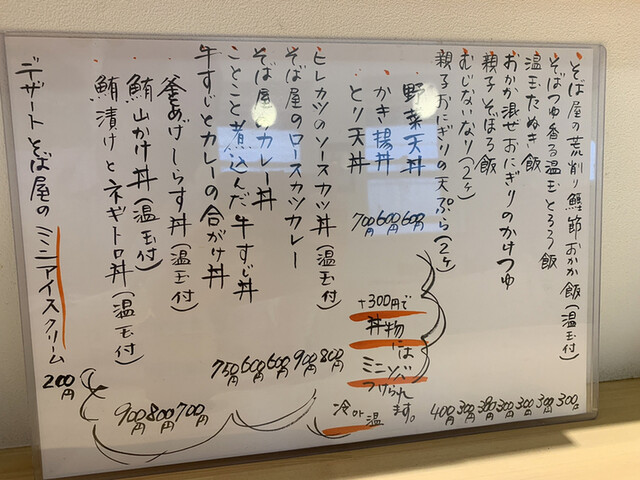 そば屋の荒削り鰹節おかか飯(温玉付) 300円
そばつゆ香る温玉とろろ飯 300円
温玉たぬき飯 300円
おかか混ぜおにぎりのかけつゆ 300円
親子そぼろ飯 300円
むじないなり(2ヶ) 300円
親子おにぎりの天ぷら(2ヶ) 400円
野菜天丼 600円
かき揚丼 600円
とり天丼 700円
+300円で
丼物には
ミニそば
つけられ
ます。
冷or温
ヒレカツのソースカツ丼(温玉付) 800円
そば屋のロースカツカレー 900円
そば屋のカレー丼 600円
ことこと煮込んだ牛すじ丼 600円
牛すじとカレーの合がけ丼 750円
釜あげしらす丼(温玉付) 700円
鮪山かけ丼(温玉付) 800円
鮪漬けとネギトロ丼(温玉付) 900円
デザート そば屋のミニアイスクリーム 200円